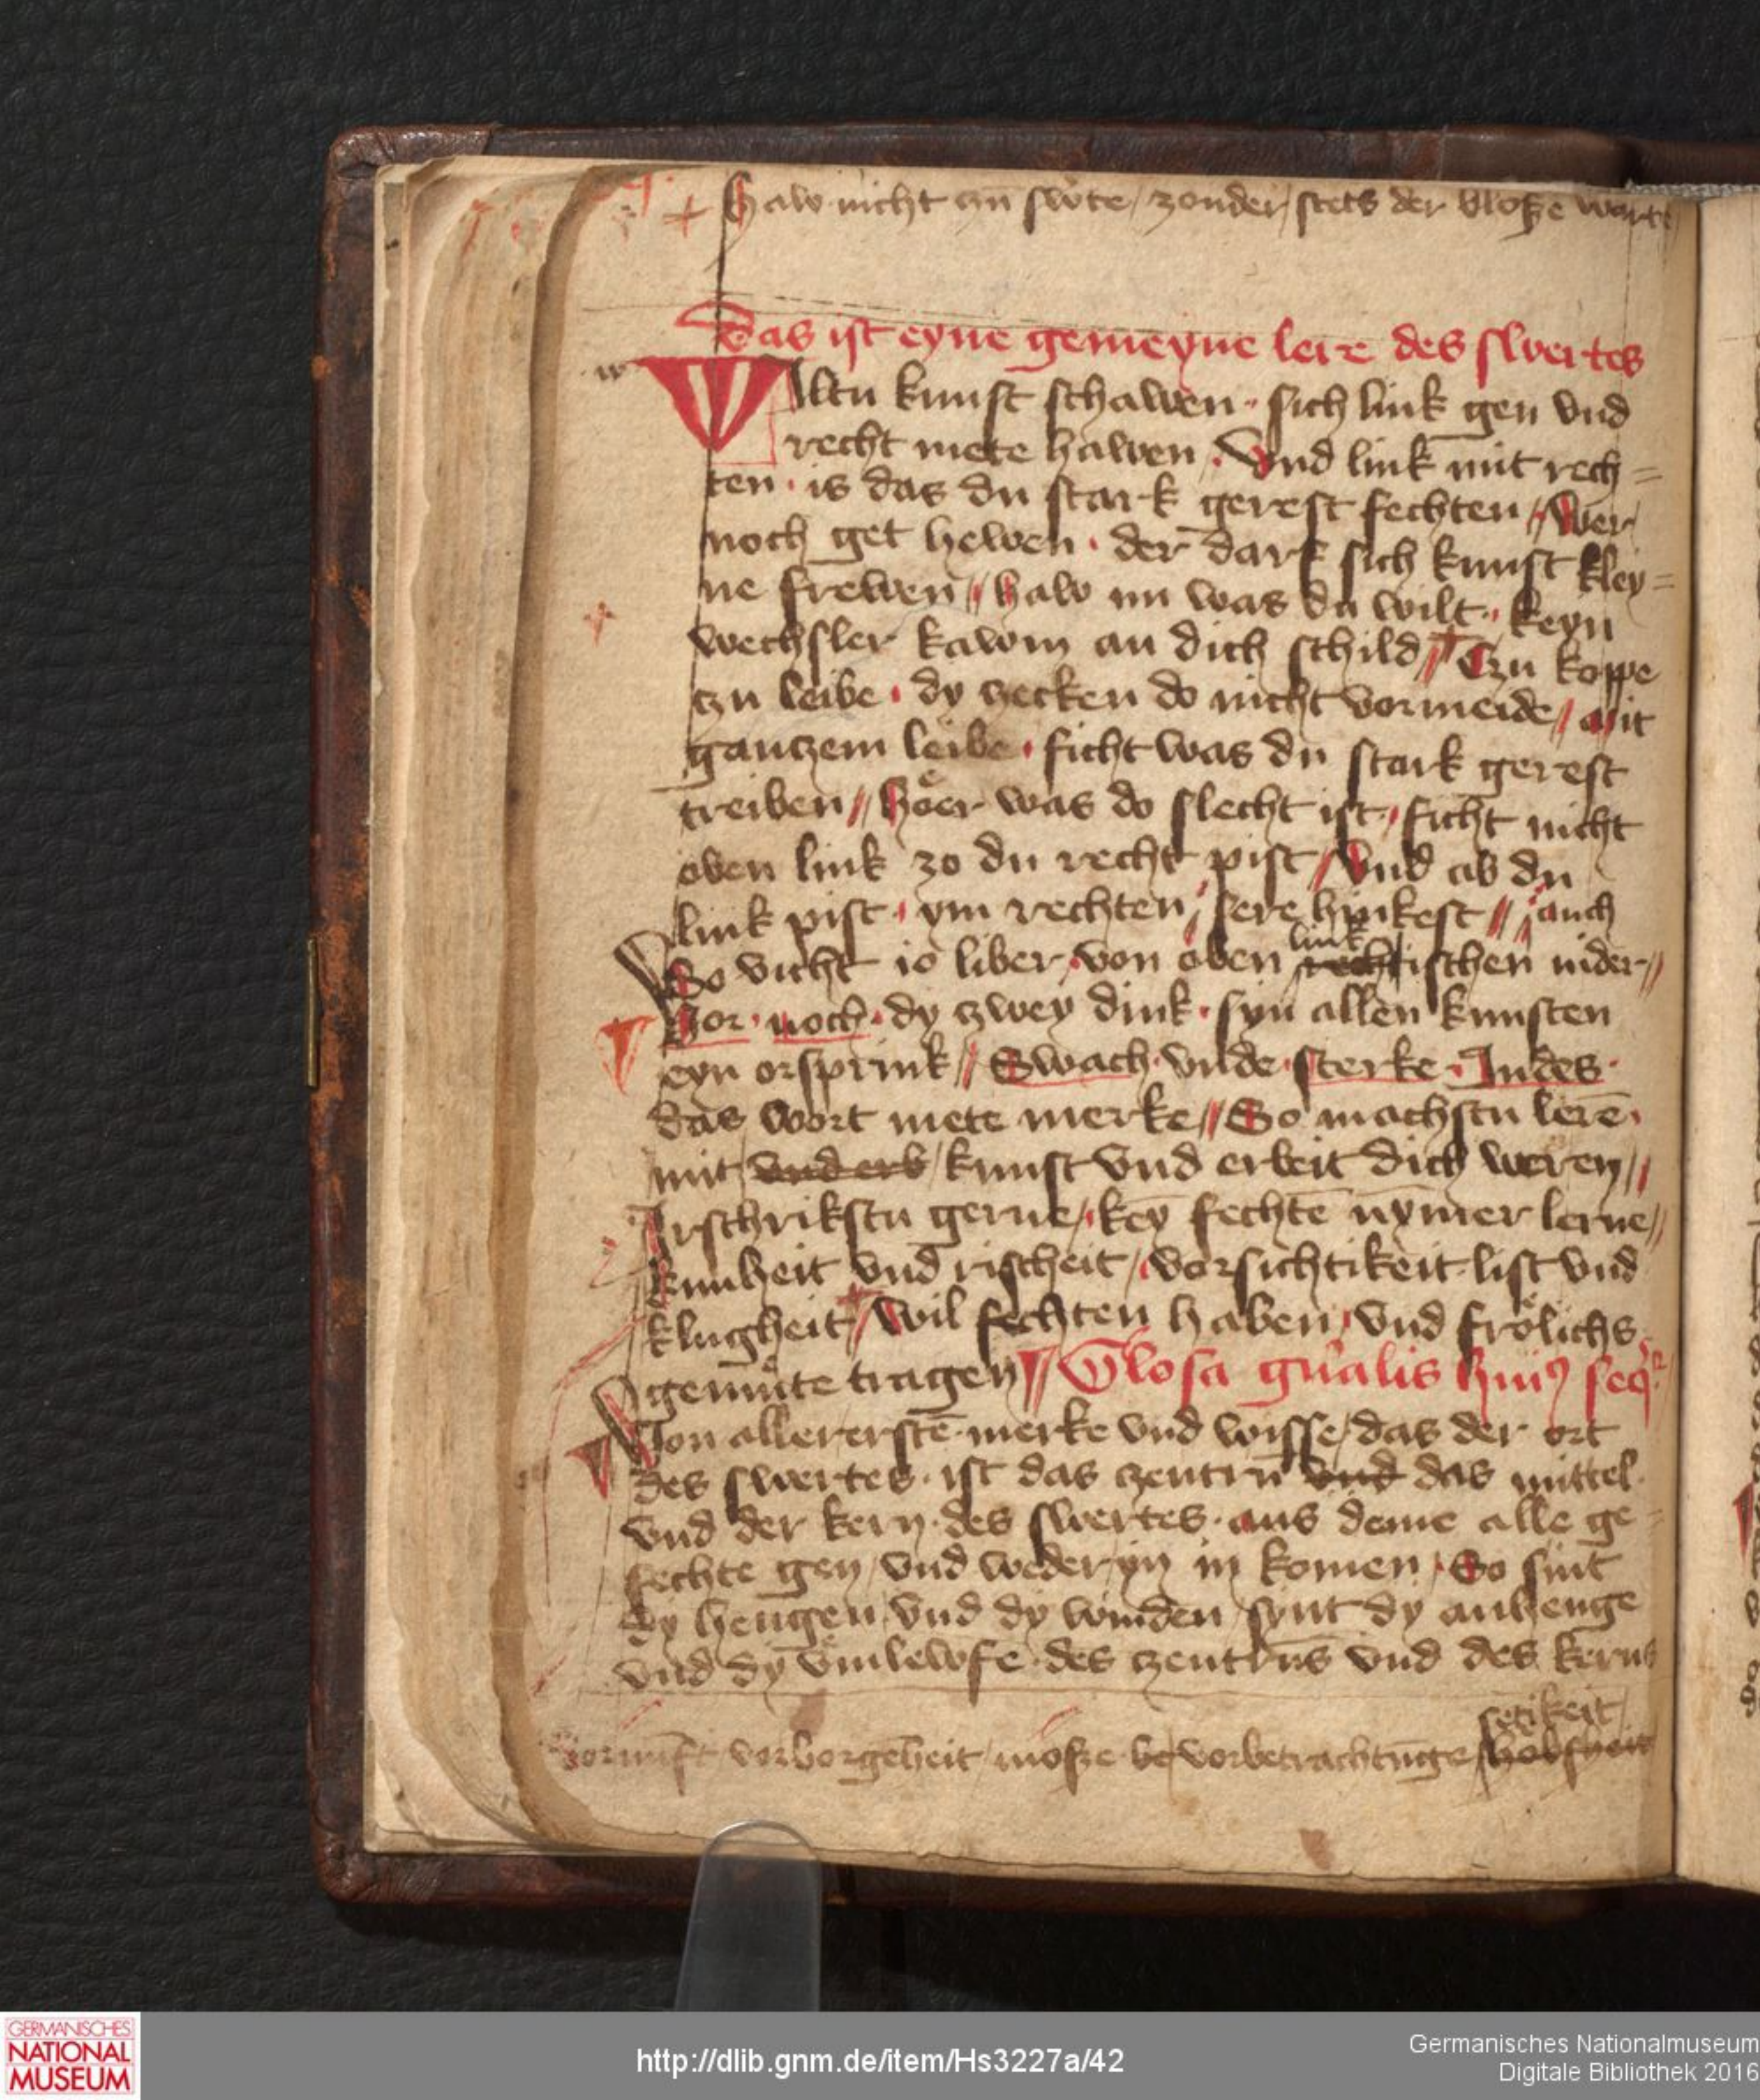 + Haw nicht czu˜ swͦte / zonder / stets der blosse warte /
Das ist eyne gemeyne lere des swertes
w
Wiltu kunst schawen · sich link gen vnd
recht mete hawen · Vnd link mit rech=
ten · is das du stark gerest fechten // Wer
noch get hewen · der darf sich kunst kley=
ne frewen // haw nu was du wilt · keyn
wechsler kawm an dich schild // + Czu koppe
zu leibe · dy zecken do nicht vormeide // mit
ganczem leibe · ficht was du stark gerest
treiben // hͦer was do slecht ist / ficht nicht
oben link zo du recht pist / Vnd ab du
link pist · ym rechten / sere hinkest // auch
So vicht io liber / von oben rech link ischen nider //
Vor · noch · dy zwey dink · syn allen kunsten
eyn orsprink // Swach · vnde · sterke · Indes ·
das wort mete merke // So machstu lere˜ ·
mit / vnd erb / kunst vnd erbeit dich weren //
Irschrikstu gerne / key˜ fechte˜ nymer lerne //
kunheit vnd rischeit / vorsichtikeit · list vnd
klugheit + / wil fechten haben / vnd frölichs ·
gemüte tragen // Glosa gn͛alis hui9 seqͥ˞
Von allererste˜ · merke vnd wisse / das der ort
des swertes · ist das zentru˜ vnd das mittel ·
vnd der kern · des swertes · aus deme alle ge=
fechte gen / vnd weder yn in komen / So sint
dy hengen vnd dy winden / synt dy anhenge
vnd dy vmlewfe˜ · des zentru˜s vnd des kerns
setikeit /
vornu˜ft / vorborgenheit / mosze · be vorbetrachtu˜ge / hobsheit
GERMANISCHES
NATIONAL
MUSEUM
http://dlib.gnm.de/item/Hs3227a/42
Germanisches Nationalmuseum
Digitale Bibliothek 2016